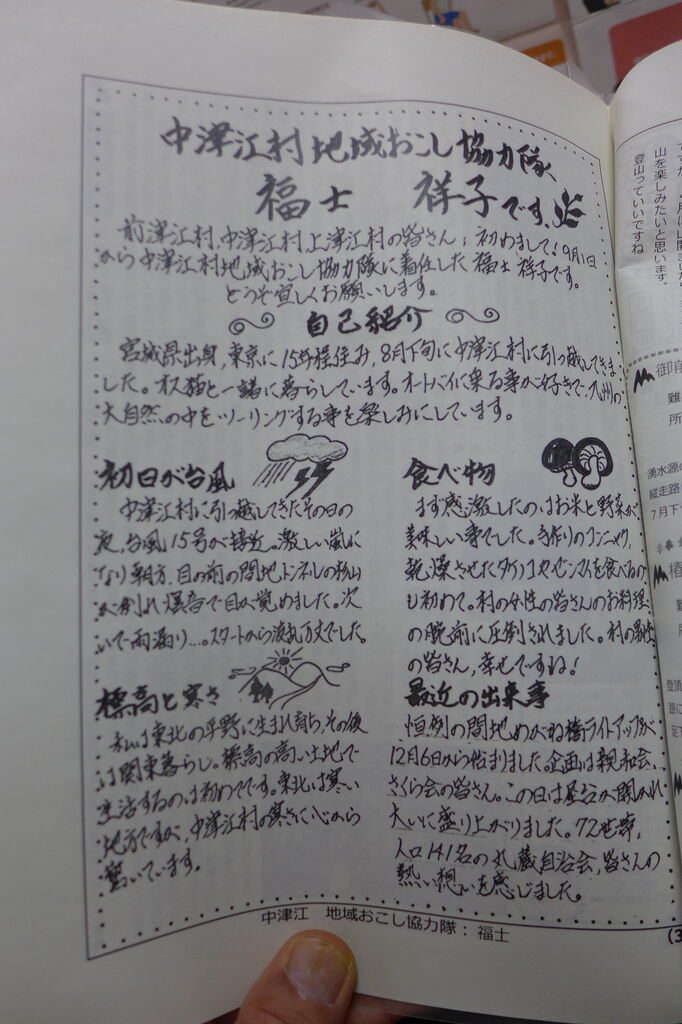 中津江村地域おこし協力隊
福士 祥子です。
前津江村,中津江村,上津江村の皆さん,初めまして!9月1日
から中津江村地域おこし協力隊に着任した福士祥子です。
どうぞ宜しくお願いします。
自己紹介
宮城県出身,東京に15年程住み,8月下旬に中津江村に引っ越してきま
した。オス猫と一緒に暮らしています。オートバイに乗る事が好きで,九州の
大自然の中をツーリングする事を楽しみにしています。
初日が台風
中津江村に引っ越してきたその日の
夜,台風15号が接近。激しい嵐に
なり朝方,目の前の間地トンネルの杉山
が倒れ爆音で目が覚めました。次
いで雨漏り…。スタートから波乱万丈でした。
標高と寒さ
私は東北の平野に生まれ育ち,その後
は関東暮らし。標高の高い土地で
生活するのは初めてです。東北は寒い
地方ですが,中津江村の寒さに心から
驚いています。
食べ物
まず感激したのはお米と野菜が
美味しい事でした。手作りのコンニャク,
乾燥させたタケノコやゼンマイを食べるの
も初めて。村の女性の皆さんのお料理
の腕前に圧倒されました。村の男性
の皆さん,幸せですね!
最近の出来事
恒例の間地めがね橋ライトアップが
12月6日から始まりました。企画は親和会,
さくら会の皆さん。この日は屋台が開かれ
大いに盛り上がりました。72世帯,
人口141名の丸蔵自治会,皆さんの
熱い想いを感じました。
中津江 地域おこし協力隊:福士
山を楽しみたいと思います。
登山っていいですね
御前
難
所
湧水源の
縦走路
7月下
椿
登頂
路に
(3